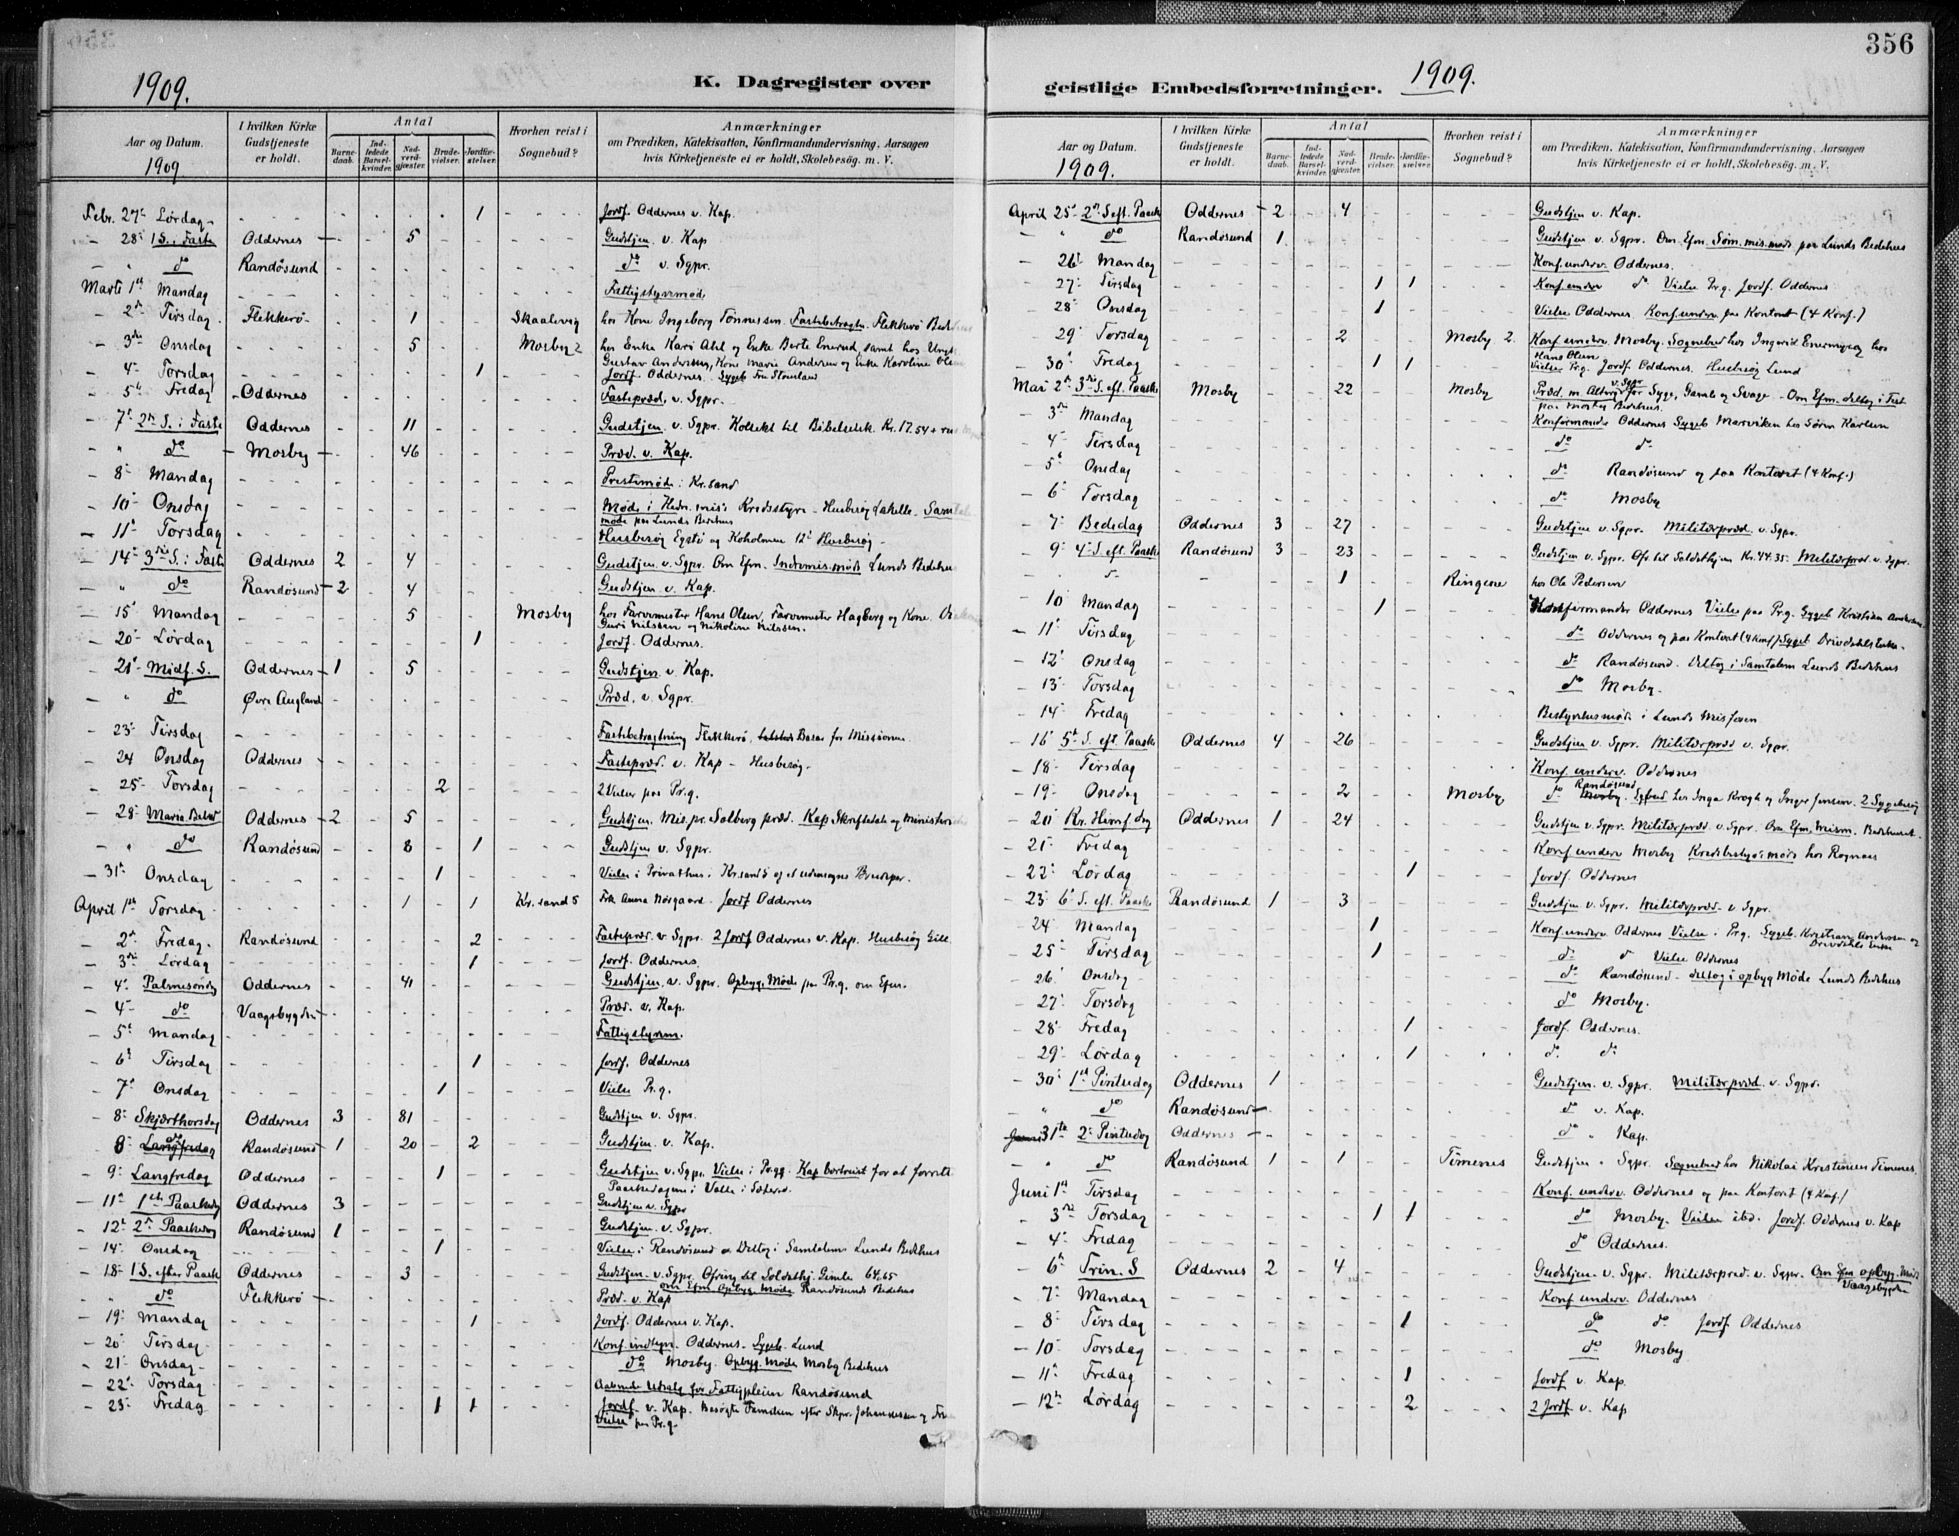 356
1909.
K. Dagregister over
geistlige Embedsforretninger. 1909.
Aar og Datum. 1909
I hvilken Kirke Gudstjeneste er holdt.
Antal
Barnedaab.
Indledede Barselkvinder.
Nadverdgjæster
Brudevielser.
Jordfæstelser.
Hvorhen reist i Sognebud?
Anmærkninger
om Prædiken, Katekisation, Konfirmandundervisning, Aarsagen
hvis Kirketjeneste ei er holdt, Skolebesög. m. V.
Febr. 27 Lørdag - 1 Jordf. Oddernes v. Kap.
- 28 1 S. i Faste Oddernes 5 Gudstjen. v. Kap
- " do Randösund do v. Sgpr.
Marts 1st Mandag Fattigstyremøde
- 2 Tirsdag Flekkerö 1 Skaalevig hos Kone Ingeborg Tönnessen. Fastebetragtn. Flekkerö
- 3die Onsdag 5 Mosby 2 hos Enke Kari Ahl og Enke Berte Enerud, samt hos
Gustav Anderssen, Kone Marie Andersen og Enke Karoline
- 4 Torsdag 1 Jordf Oddernes. Sygeb
- 5 Fredag Oddernes Fastepræd. v. Sgpr.
- 7 2n S. i Faste Oddernes 11 Gudstjen v. Sgpr. Kollekt til Bibelselsk. Kr. 17.54
- " do Mosby 46 Præd. v. Kap.
- 8 Mandag Prestemöde i Kr.sand
- 10 Onsdag Möde i Hedn. mis. Kredsstyre - Husbesög
möde paa Lunds Bedehus
- 11 Torsdag Husbesög Egstö og Koholmen 12 Husbesög
- 14 3die S. i Faste Oddernes 2 4 Gudstjen v. Sgpr. Om Efm. Indremis.möde Lunds Bedehus
- " do Randösund 2 4 Gudstjen v. Kap.
- 15 Mandag 5 Mosby hos Farvemester Hans Olsen, Farvemester Hagberg og Kone.
Guri Nilssen og Nikoline Nilssen.
- 20 Lördag 1 Jordf. Oddernes.
- 21 Midf. S. Oddernes 1 5 Gudstjen v. Kap.
- " do Øvre Augland Præd. v. Sgpr.
- 23 Tirsdag Fastebetragtning Flekkerö, Basar for Missionen
- 24 Onsdag Oddernes Fastepræd. v. Kap - Husbesög.
- 25 Torsdag 2 2 Vielser paa Pr.g.
- 28 Maria Bebud Oddernes 2 5 Gudstjen. Mis.pr. Solberg præd. Kap Skriftetale og
- " do Randösund 8 1 Gudstjen v. Sgpr.
- 31 Onsdag 1 Vielse i Privathus i Kr.sand S af et udensogns Brudepar.
April 1st Torsdag 1 1 Kr. sand S Frk Anna Nörgaard. Jordf Oddernes
- 2 Fredag Randösund 2 Fastepræd. v. Sgpr. 2 Jordf Oddernes v. Kap. Husbesög
- 3die Lørdag 1 Jordf. Oddernes.
- 4 Palmesöndg Oddernes 41 Gudstjen. v. Sgpr. Opbygg. Möde paa Pr.g. om Efm.
- 4 do Vaagsbygden Præd. v. Kap.
- 5 Mandag Fattigstyrem.
- 6 Tirsdag 1 Jordf. Oddernes
- 7 Onsdag 1 Vielse Pr.g.
- 8 Skjærthorsdag Oddernes 3 81 Gudstjen v. Sgpr.
8 do Langfredag Randösund 1 20 2 Gudstjen. v. Kap.
- 9 Langfredag Oddernes 1 Gudstjen v. Sgpr. Vielse i Pr.g. Kap bortreist for at forrette
Paaskedagene i Valle i Sætersd.
- 11 1ste Paaskedg Oddernes 3 Gudstjen v. Sgpr
- 12 2n Paaskedag Randösund 1 Gudstjen. v. Sgpr.
- 14 Onsdag 1 Vielse i Randösund Deltog i Samtalem Lunds Bedehus
- 18 1 S. efter Paask Oddernes 3 Gudstjen. v. Sgpr Ofring til Soldathj. Gimle 64,65
om Efm Opbyg. Møde Randösunds Bedehus
- " do Flekkerö Præd v. Kap
- 19 Mandag 1 Jordf. Oddernes v. Kap.
- 20 Tirsdag Konf. indtegn. Oddernes. Sygeb. Lund
- 21 Onsdag do Mosby. Opbyg. Møde Mosby Bedehus
- 22 Torsdag Fattigpleien Randösund
- 23 Fredag 1 1 Jordf v. Kap. Besögte Familien efter Skpr. Johannesen og
Vielse paa Pr.g.
Aar og Datum. 1909.
I hvilken Kirke Gudstjeneste er holdt.
Antal
Barnedaab.
Indledede Barselkvinder.
Nadverdgjester.
Brudevielser.
Jordfæstelser.
Hvorhen reist i Sognebud?
Anmærkninger
om Prædiken, Katekisation, Konfirmandundervisning, Aarsagen
hvis Kirketjeneste ei er holdt, Skolebesög. m. V.
April 25 2n S. eft. Paask Oddernes 2 4 Gudstjen v. Kap.
- " do Randösund 1 Gudstjen v. Sgpr. Om Efm. Søm. mis. möde paa Lunds Bedehus
- 26 Mandag Konf. underv. Oddernes.
- 27 Tirsdag 1 1 Konf. underv do Vielse Pr.g. Jordf. Oddernes
- 28 Onsdag 1 Vielse Oddernes. Konf. underv paa Kontoret (4 Konf.)
29 Torsdag 2 Mosby 2. Konf. underv. Mosby. Sognebud hos Ingerid Enermyra hos
Hans Olsen
30 Fredag 1 1 Vielse Pr.g. Jordf. Oddernes. Husbesög Lund
Mai 2 3die S. eft. Paaske Mosby 22 Mosby Præd. m. Altergang v. Sgpr for Syge, Gamle og Svage. Om Efm. deltog i Fest
paa Mosby Bedehus.
- 3die Mandag Konfirmander Oddernes Sygeb Marviken hos Sören Karlsen
- 4 Tirsdag do do
- 5 Onsdag do Randösund og paa Kontoret (4 Konf.)
- 6 Torsdag do Mosby
- 7 Bededag Oddernes 3 27 Gudstjen v. Sgpr. Militærpræd v. Sgpr.
- 9 4 S. eft. Paaske Randösund 3 23 Gudstjen v. Sgpr. Ofr. til Soldathjem Kr. 44.35. Militærpræd v. Sgpr.
1 Ringere hos Ole Pedersen
10 Mandag 1 Konfirmander Oddernes Vielse paa Pr.g. Sygeb Kristian Andersen
- 11 Tirsdag do Oddernes og paa Kontoret (4 Konf.) Sygeb Drivdahls Enke.
- 12 Onsdag do Randösund. Deltog i Samtalem Lunds Bedehus
- 13 Torsdag do Mosby.
- 14 Fredag Bestyrelsesmöde i Lunds Misforen
- 16 5 S. eft. Paaske Oddernes 4 26 Gudstjen v. Sgpr. Militærpræd v. Sgpr.
- 18 Tirsdag Konf. underv. Oddernes
- 19 Onsdag 2 Mosby do Randösund Mosby. Sognebud hos Inga Krogh og Inger Jensen. 2 Sygebesög
- 20 Kr. Himf. dag Oddernes 1 24 Gudstjen v. Sgpr. Militærpræd. v. Sgpr. Om Efm. Mism. Bedehuset.
- 21 Fredag Konf underv Mosby Kredsbestyr.möde hos Rognaas
- 22 Lördag 1 Jordf. Oddernes
- 23 6 S. eft. Paaske Randösund 1 3 Gudstjen v. Sgpr. Militærpræd. v Sgpr.
- 24 Mandag 1 Konf. underv Oddernes Vielse i Pr.g. Sygeb. Kristian Andersen og
Drivdahls Enke
- 25 Tirsdag 1 do do Vielse Oddernes
- 26 Onsdag do Randösund - deltog i opbyg Möde Lunds Bedehus
- 27 Torsdag do Mosby.
- 28 Fredag 1 Jordf Oddernes.
- 29 Lördag 1 do do
- 30 1st Pintsedag Oddernes 1 Gudstjen. v. Sgpr. Militærpræd. v. Sgpr.
" do Randösund do v. Kap.
Juni 31te 2 Pintsedag Oddernes do " Kap.
" do Randösund 1 1 Timenes Gudstjen " Sgpr. Sognebud hos Nikolai Kristensen Timenes.
Juni 1st Tirsdag Konf. underv. Oddernes og paa Kontoret (4 Konf.)
- 3die Torsdag 1 1 do Mosby. Vielse ibd. Jordf. Oddernes v. Kap
- 4 Fredag do Oddernes.
- 6 Trin. S Oddernes 2 4 Gudstjen v. Sgpr. Militærpræd. v. Sgpr. Om Efm opbyg. Möde
Vaagsbygden
- 7 Mandag Konf. underv. Oddernes
- 8 Tirsdag 1 do do Jordf Oddernes
- 10 Torsdag do Mosby
- 11 Fredag 1 Jordf v. Kap
- 12 Lördag 2 2 Jordf v. Kap